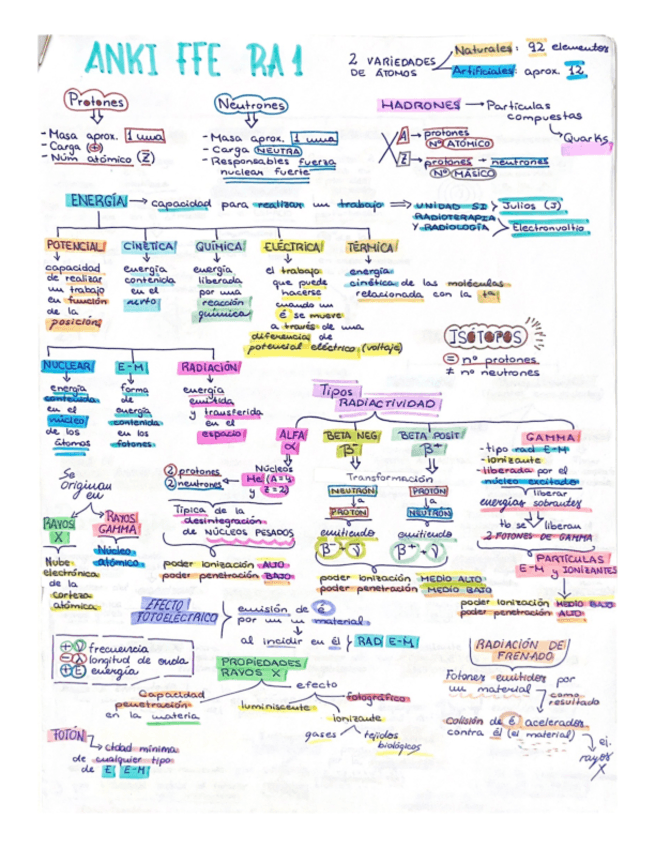 ANKI FFE RA1
2 VARIEDADES
DE ÁTOMOS
Naturales: 92 elementos
Artificiales: aprox. 12
Protones
- Masa aprox. 1 uma
- Carga +
- Núm atómico (Z)
Neutrones
- Masa aprox. 1 uma
- Carga NEUTRA
- Responsables fuerza
nuclear fuerte
HADRONES → Partículas
compuestas
Quarks
A → protones
Nº ATÓMICO
Z → protones - neutrones
Nº MÁSICO
ENERGÍA → capacidad para realizar un trabajo ⇒ UNIDAD SI > Julios (J)
RADIOTERAPIA
Y RADIOLOGÍA > Electronvoltio
POTENCIAL
capacidad
de realizar
un trabajo
en función
de la
posición
CINÉTICA
energía
contenida
en el
QUÍMICA
energía
liberada
por una
reacción
química
ELÉCTRICA
el trabajo
que puede
hacerse
cuando un
é se mueve
a través de una
diferencia de
potencial eléctrico (voltaje)
TÉRMICA
energía
cinética de las moléculas
relacionada con la tª
ISÓTOPOS
= nº protones
≠ nº neutrones
NUCLEAR
energía
contenida
en el
núcleo
de los
átomos
E-M
forma
de
energía
contenida
en los
fotones
RADIACIÓN
energía
emitida
y transferida
en el
espacio
Tipos
RADIACTIVIDAD
ALFA
α
Núcleos
He (A=4
y Z=2)
2 protones
2 neutrones
Típica de la
desintegración
de NÚCLEOS PESADOS
poder ionización ALTO
poder penetración BAJO
BETA NEG
β⁻
BETA POSIT
β⁺
Transformación
NEUTRÓN
a
PROTÓN
emitiendo
β⁻ - ν
PROTÓN
a
NEUTRÓN
emitiendo
β⁺ - ν
poder ionización MEDIO ALTO
poder penetración MEDIO BAJO
GAMMA
- tipo rad E-M
- ionizante
- liberada por el
núcleo excitado
liberar
energías sobrantes
tb se liberan
2 FOTONES DE GAMMA
PARTÍCULAS
E-M y IONIZANTES
poder ionización MEDIO BAJO
poder penetración ALTO
Se
originan
en
RAYOS
X
Nube
electrónica
de la
corteza
atómica
RAYOS
GAMMA
Núcleo
atómico
EFECTO
FOTOELÉCTRICO
emisión de é
por un material
al incidir en él } RAD E-M
+ ν frecuencia
- λ longitud de onda
+ E energía
PROPIEDADES
RAYOS X
Capacidad
penetración
en la materia
efecto
luminiscente
fotográfico
ionizante
gases
tejidos
biológicos
RADIACIÓN DE
FRENADO
Fotones emitidos por
un material
como
resultado
colisión de é acelerados
contra él (el material)
ej.
rayos
X
FOTÓN
ctdad mínima
de cualquier tipo
de E E-M